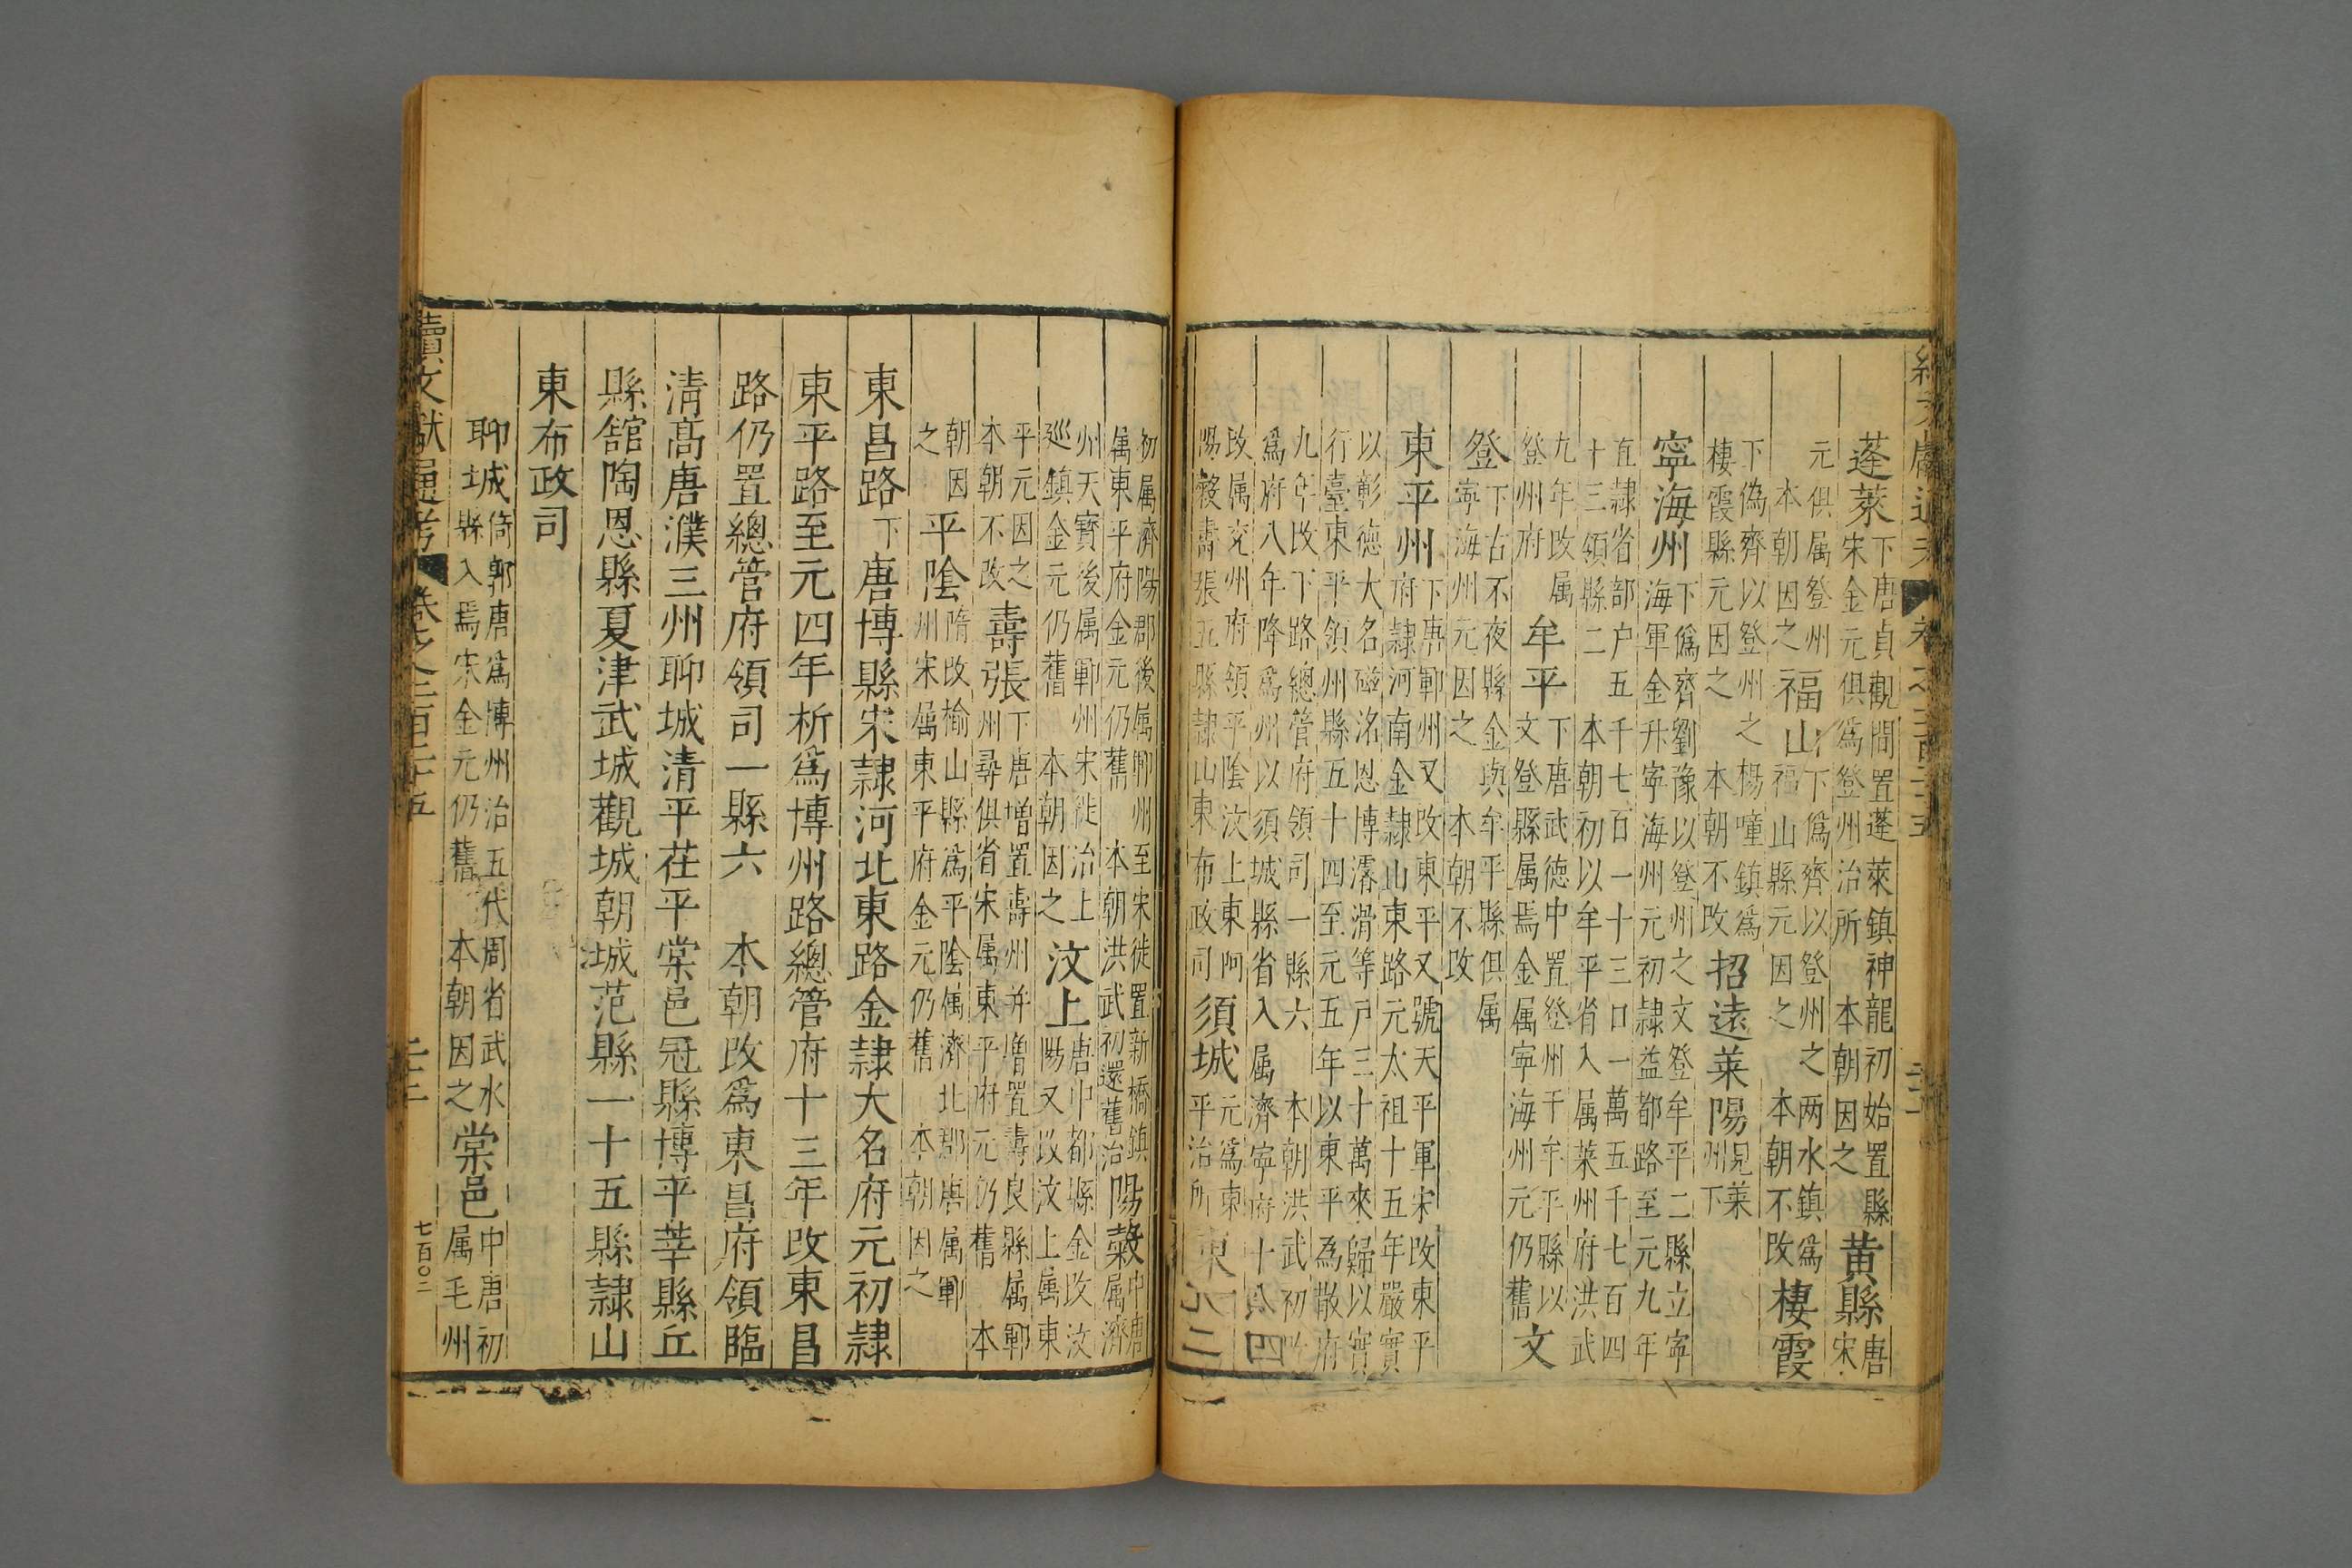 蓬萊下唐貞觀間置蓬萊鎮神龍初始置縣宋金元俱爲登州治所 本朝因之黄縣唐宋
元俱属登州 本朝因之福山下偽齊以登州之两水鎮爲福山縣元因之 本朝不改棲霞
下偽齊以登州之楊疃鎮爲棲霞縣元因之 本朝不改招遠萊陽見萊州下
寧海州下偽齊劉豫以登州之文登牟平二縣立寧海軍金升寧海州元初隷益都路至元九年
直隷省部户五千七百一十三口一萬五千七百四十三領縣二 本朝初以牟平省入属萊州府洪武
九年改属登州府牟平下唐武德中置登州于牟平縣以文登縣属焉金属寧海州元仍舊文
登下古不夜縣金與牟平縣俱属寧海州元因之 本朝不改
東平州下唐鄆州又改東平又號天平軍宋改東平府隷河南金隷山東路元太祖十五年嚴實
以彰德大名磁洺恩博濬滑等户三十萬來歸以實行臺東平領州縣五十四至元五年以東平為散府
九年改下路總管府領司一縣六 本朝洪武初爲府八年降爲州以須城縣省入属濟寧府十八
改属兖州府領平陰汶上東阿陽穀壽張五縣隷山東布政司須城元爲東平治所東
初属濟陽郡後属鄆州至宋徙置新橋鎮属東平府金元仍舊 本朝洪武初還舊治陽榖中唐属濟
州天寳後属鄆州宋徙治上巡鎮金元仍舊 本朝因之汶上唐中都縣金改汶陽又改汶上属東
平元因之本朝不改壽張下唐增置壽州并增置壽良縣属鄆州尋俱省宋属東平府元仍舊 本
朝因之平陰隋改榆山縣爲平陰属濟北郡唐属鄆州宋属東平府金元仍舊 本朝因之
東昌路下唐博縣宋隷河北東路金隷大名府元初隷
東平路至元四年析爲博州路總管府十三年改東昌
路仍置總管府領司一縣六 本朝改爲東昌府領臨
清高唐濮三州聊城清平茌平棠邑冠縣博平莘縣丘
縣舘陶恩縣夏津武城觀城朝城范縣一十五縣隷山
東布政司
聊城倚郭唐爲博州治五代周省武水縣入焉宋金元仍舊 本朝因之棠邑中唐初属毛州
續文獻通考 卷之二百二十五 二十二 七百〇二